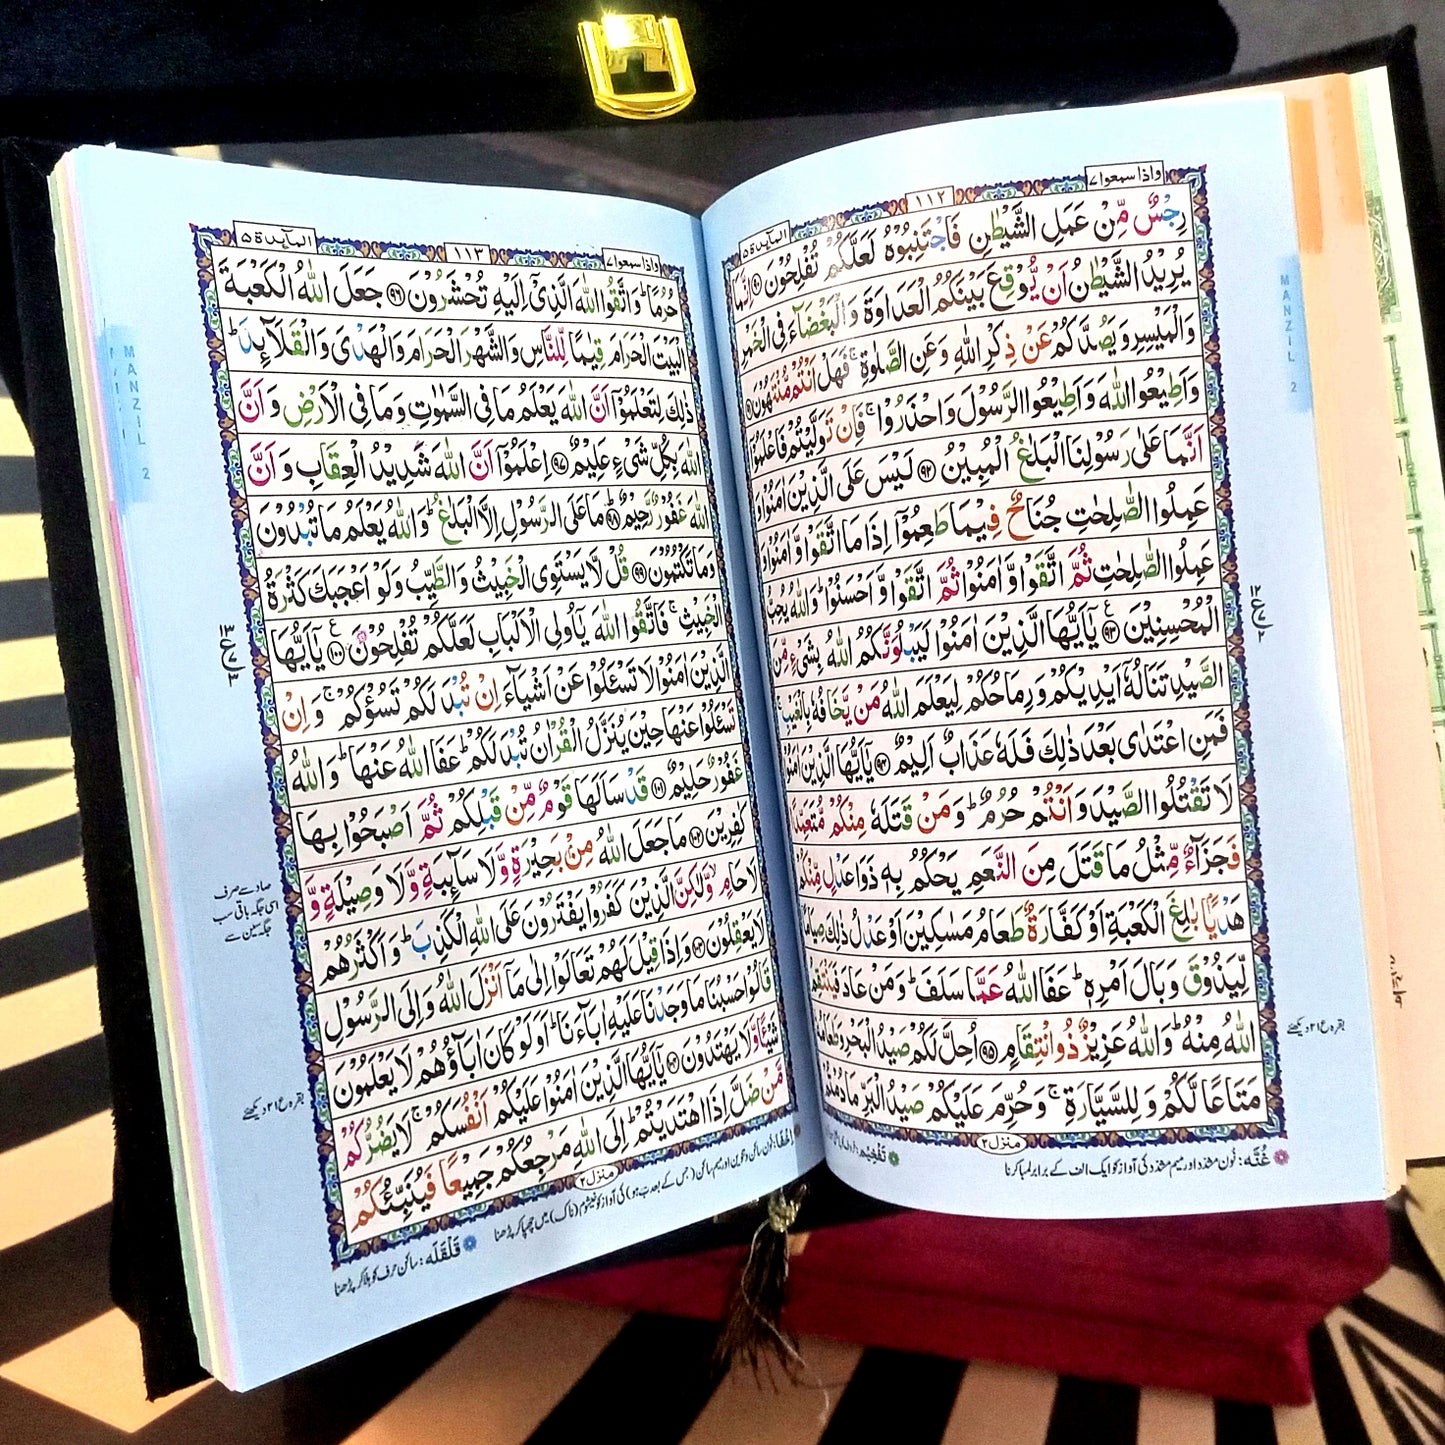 واذاسمعوا٧
١١٢
المآىٕدة٥
رِجْسٌ مِّنْ عَمَلِ الشَّيْطٰنِ فَاجْتَنِبُوْهُ لَعَلَّكُمْ تُفْلِحُوْنَ ﴿٩٠﴾ اِنَّمَا
يُرِيْدُ الشَّيْطٰنُ اَنْ يُّوْقِعَ بَيْنَكُمُ الْعَدَاوَةَ وَالْبَغْضَآءَ فِى الْخَمْرِ
وَالْمَيْسِرِ وَيَصُدَّكُمْ عَنْ ذِكْرِ اللّٰهِ وَعَنِ الصَّلٰوةِ ۚ فَهَلْ اَنْتُمْ مُّنْتَهُوْنَ ﴿٩١﴾
وَاَطِيْعُوا اللّٰهَ وَاَطِيْعُوا الرَّسُوْلَ وَاحْذَرُوْا ۚ فَاِنْ تَوَلَّيْتُمْ فَاعْلَمُوْٓا
اَنَّمَا عَلٰى رَسُوْلِنَا الْبَلٰغُ الْمُبِيْنُ ﴿٩٢﴾ لَيْسَ عَلَى الَّذِيْنَ اٰمَنُوْا وَ
عَمِلُوا الصّٰلِحٰتِ جُنَاحٌ فِيْمَا طَعِمُوْٓا اِذَا مَا اتَّقَوْا وَّاٰمَنُوْا وَ
عَمِلُوا الصّٰلِحٰتِ ثُمَّ اتَّقَوْا وَّاٰمَنُوْا ثُمَّ اتَّقَوْا وَّاَحْسَنُوْا ؕ وَاللّٰهُ يُحِبُّ
الْمُحْسِنِيْنَ ﴿٩٣﴾ يٰٓاَيُّهَا الَّذِيْنَ اٰمَنُوْا لَيَبْلُوَنَّكُمُ اللّٰهُ بِشَىْءٍ مِّنَ
الصَّيْدِ تَنَالُهٗٓ اَيْدِيْكُمْ وَرِمَاحُكُمْ لِيَعْلَمَ اللّٰهُ مَنْ يَّخَافُهٗ بِالْغَيْبِ ۚ
فَمَنِ اعْتَدٰى بَعْدَ ذٰلِكَ فَلَهٗ عَذَابٌ اَلِيْمٌ ﴿٩٤﴾ يٰٓاَيُّهَا الَّذِيْنَ اٰمَنُوْا
لَا تَقْتُلُوا الصَّيْدَ وَاَنْتُمْ حُرُمٌ ؕ وَمَنْ قَتَلَهٗ مِنْكُمْ مُّتَعَمِّدًا
فَجَزَآءٌ مِّثْلُ مَا قَتَلَ مِنَ النَّعَمِ يَحْكُمُ بِهٖ ذَوَا عَدْلٍ مِّنْكُمْ
هَدْيًۢا بٰلِغَ الْكَعْبَةِ اَوْ كَفَّارَةٌ طَعَامُ مَسٰكِيْنَ اَوْ عَدْلُ ذٰلِكَ صِيَامًا
لِّيَذُوْقَ وَبَالَ اَمْرِهٖ ؕ عَفَا اللّٰهُ عَمَّا سَلَفَ ؕ وَمَنْ عَادَ فَيَنْتَقِمُ
اللّٰهُ مِنْهُ ؕ وَاللّٰهُ عَزِيْزٌ ذُو انْتِقَامٍ ﴿٩٥﴾ اُحِلَّ لَكُمْ صَيْدُ الْبَحْرِ وَطَعَامُهٗ
مَتَاعًا لَّكُمْ وَلِلسَّيَّارَةِ ۚ وَحُرِّمَ عَلَيْكُمْ صَيْدُ الْبَرِّ مَا دُمْتُمْ
منزل٢
غُنَّه: نُون مشدّد اور میم مشدّد کی آواز کو ایک الف کے برابر لمبا کرنا
تَفْخِیْم:
MANZIL 2
١٢ ع ٧ ٢
بقرہ ع ٢١ دیکھئے
واذاسمعوا٧
١١٣
المآىٕدة٥
حُرُمًا ؕ وَاتَّقُوا اللّٰهَ الَّذِىْٓ اِلَيْهِ تُحْشَرُوْنَ ﴿٩٦﴾ جَعَلَ اللّٰهُ الْكَعْبَةَ
الْبَيْتَ الْحَرَامَ قِيٰمًا لِّلنَّاسِ وَالشَّهْرَ الْحَرَامَ وَالْهَدْىَ وَالْقَلَآىِٕدَ ؕ
ذٰلِكَ لِتَعْلَمُوْٓا اَنَّ اللّٰهَ يَعْلَمُ مَا فِى السَّمٰوٰتِ وَمَا فِى الْاَرْضِ وَاَنَّ
اللّٰهَ بِكُلِّ شَىْءٍ عَلِيْمٌ ﴿٩٧﴾ اِعْلَمُوْٓا اَنَّ اللّٰهَ شَدِيْدُ الْعِقَابِ وَاَنَّ
اللّٰهَ غَفُوْرٌ رَّحِيْمٌ ﴿٩٨﴾ مَا عَلَى الرَّسُوْلِ اِلَّا الْبَلٰغُ ؕ وَاللّٰهُ يَعْلَمُ مَا تُبْدُوْنَ
وَمَا تَكْتُمُوْنَ ﴿٩٩﴾ قُلْ لَّا يَسْتَوِى الْخَبِيْثُ وَالطَّيِّبُ وَلَوْ اَعْجَبَكَ كَثْرَةُ
الْخَبِيْثِ ۚ فَاتَّقُوا اللّٰهَ يٰٓاُولِى الْاَلْبَابِ لَعَلَّكُمْ تُفْلِحُوْنَ ﴿١٠٠﴾ يٰٓاَيُّهَا
الَّذِيْنَ اٰمَنُوْا لَا تَسْـَٔلُوْا عَنْ اَشْيَآءَ اِنْ تُبْدَ لَكُمْ تَسُؤْكُمْ ۚ وَاِنْ
تَسْـَٔلُوْا عَنْهَا حِيْنَ يُنَزَّلُ الْقُرْاٰنُ تُبْدَ لَكُمْ ؕ عَفَا اللّٰهُ عَنْهَا ؕ وَاللّٰهُ
غَفُوْرٌ حَلِيْمٌ ﴿١٠١﴾ قَدْ سَاَلَهَا قَوْمٌ مِّنْ قَبْلِكُمْ ثُمَّ اَصْبَحُوْا بِهَا
كٰفِرِيْنَ ﴿١٠٢﴾ مَا جَعَلَ اللّٰهُ مِنْۢ بَحِيْرَةٍ وَّلَا سَآىِٕبَةٍ وَّلَا وَصِيْلَةٍ وَّ
لَا حَامٍ ۙ وَّلٰكِنَّ الَّذِيْنَ كَفَرُوْا يَفْتَرُوْنَ عَلَى اللّٰهِ الْكَذِبَ ؕ وَاَكْثَرُهُمْ
لَا يَعْقِلُوْنَ ﴿١٠٣﴾ وَاِذَا قِيْلَ لَهُمْ تَعَالَوْا اِلٰى مَآ اَنْزَلَ اللّٰهُ وَاِلَى الرَّسُوْلِ
قَالُوْا حَسْبُنَا مَا وَجَدْنَا عَلَيْهِ اٰبَآءَنَا ؕ اَوَلَوْ كَانَ اٰبَآؤُهُمْ لَا يَعْلَمُوْنَ
شَيْـًٔا وَّلَا يَهْتَدُوْنَ ﴿١٠٤﴾ يٰٓاَيُّهَا الَّذِيْنَ اٰمَنُوْا عَلَيْكُمْ اَنْفُسَكُمْ ۚ لَا يَضُرُّكُمْ
مَّنْ ضَلَّ اِذَا اهْتَدَيْتُمْ ؕ اِلَى اللّٰهِ مَرْجِعُكُمْ جَمِيْعًا فَيُنَبِّئُكُمْ
منزل٢
اِخْفَا: نُون ساکن و تنوین اور میم ساکن (جس کے بعد ب ہو) کی آواز کو خیشوم (ناک) میں چھپا کر پڑھنا
قَلْقَلَه: ساکن حرف کو ہلا کر پڑھنا
MANZIL 2
١٣ ع ٧ ٣
صاد سے صرف
اسی جگہ باقی سب
جگہ سین سے
بقرہ ع ٢١ دیکھئے